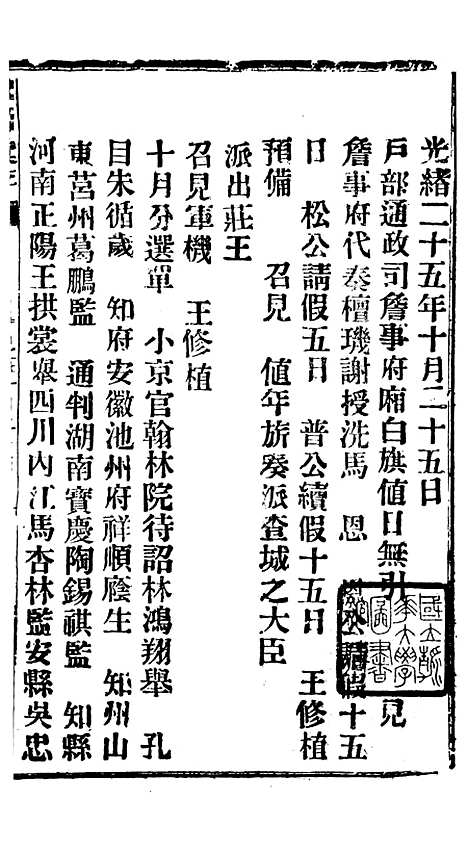 光緒二十五年十月二十五日
戶部通政司詹事府廂白旗值日無引見
詹事府代奏檀璣謝授洗馬 恩 公請假十五
日 松公請假五日 普公續假十五日 王修植
預備 召見 值年旂奏派查城之大臣
派出莊王
召見軍機 王修植
十月分選單 小京官翰林院待詔林鴻翔舉 孔
目朱循歲 知府安徽池州府祥順廕生 知州山
東莒州葛鵬監 通判湖南寶慶陶錫祺監 知縣
河南正陽王拱裳舉四川內江馬杏林監安縣吳忠
國立東京大學圖書